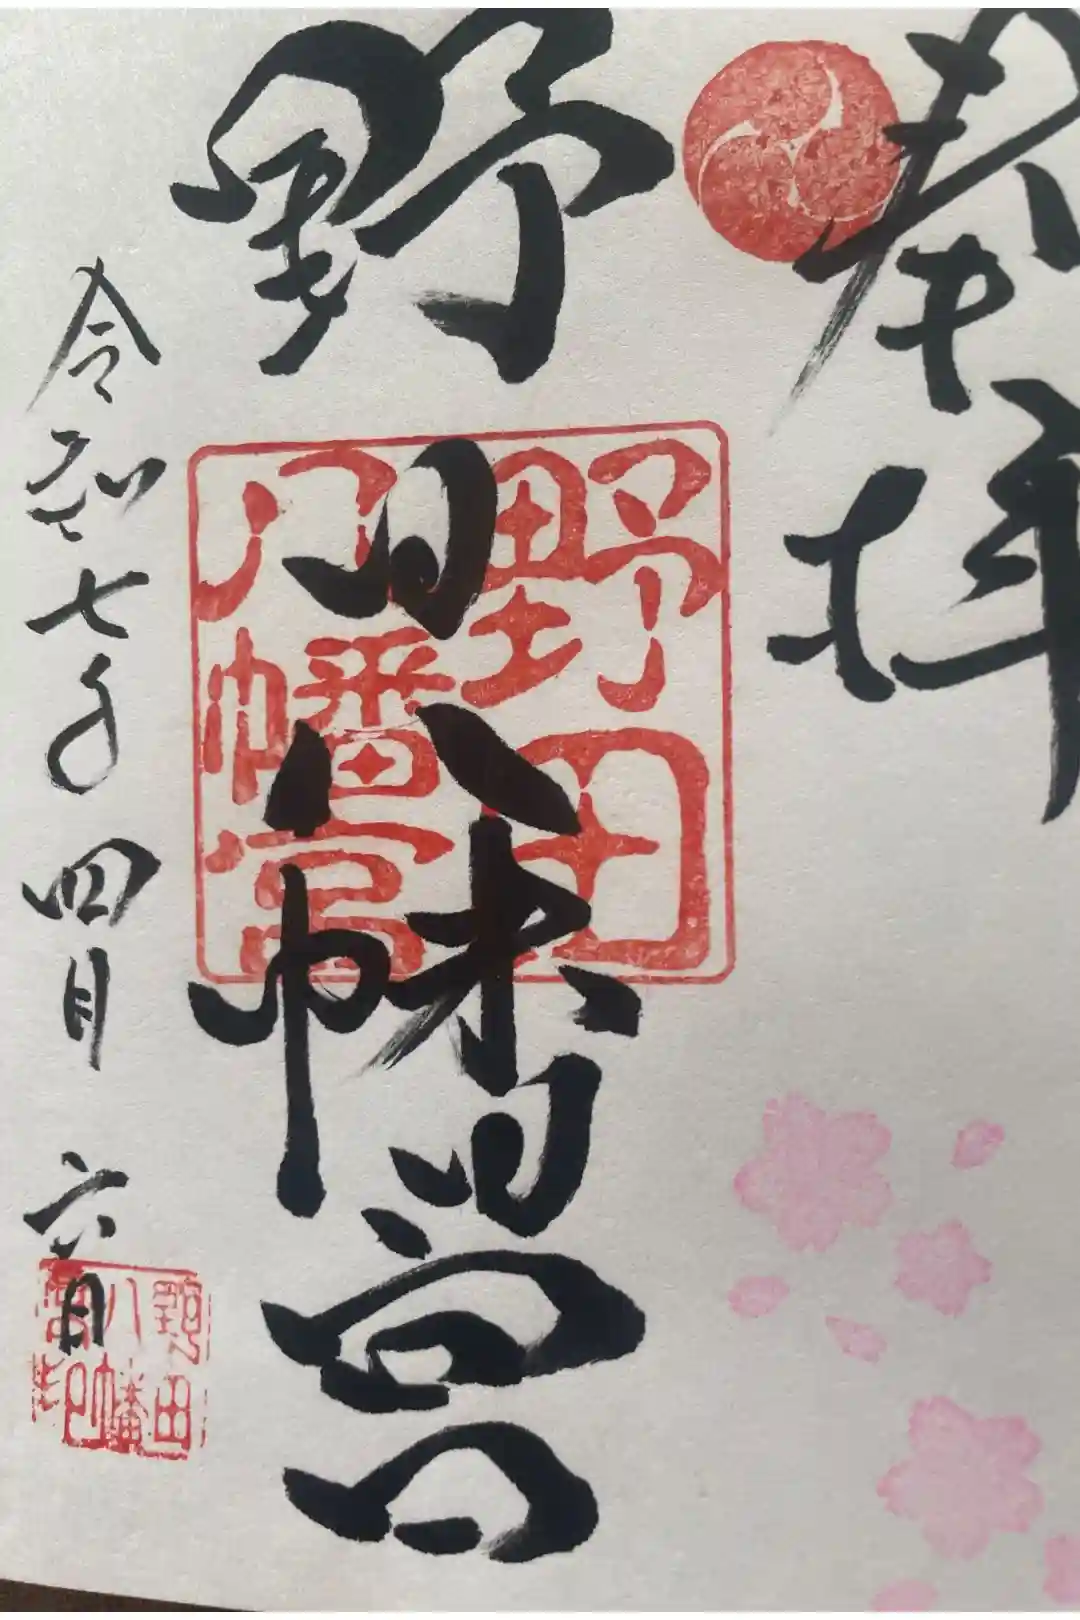 奉拝
野田八幡宮
野田
八幡宮
令和七年四月六日
野田
八幡
宮印